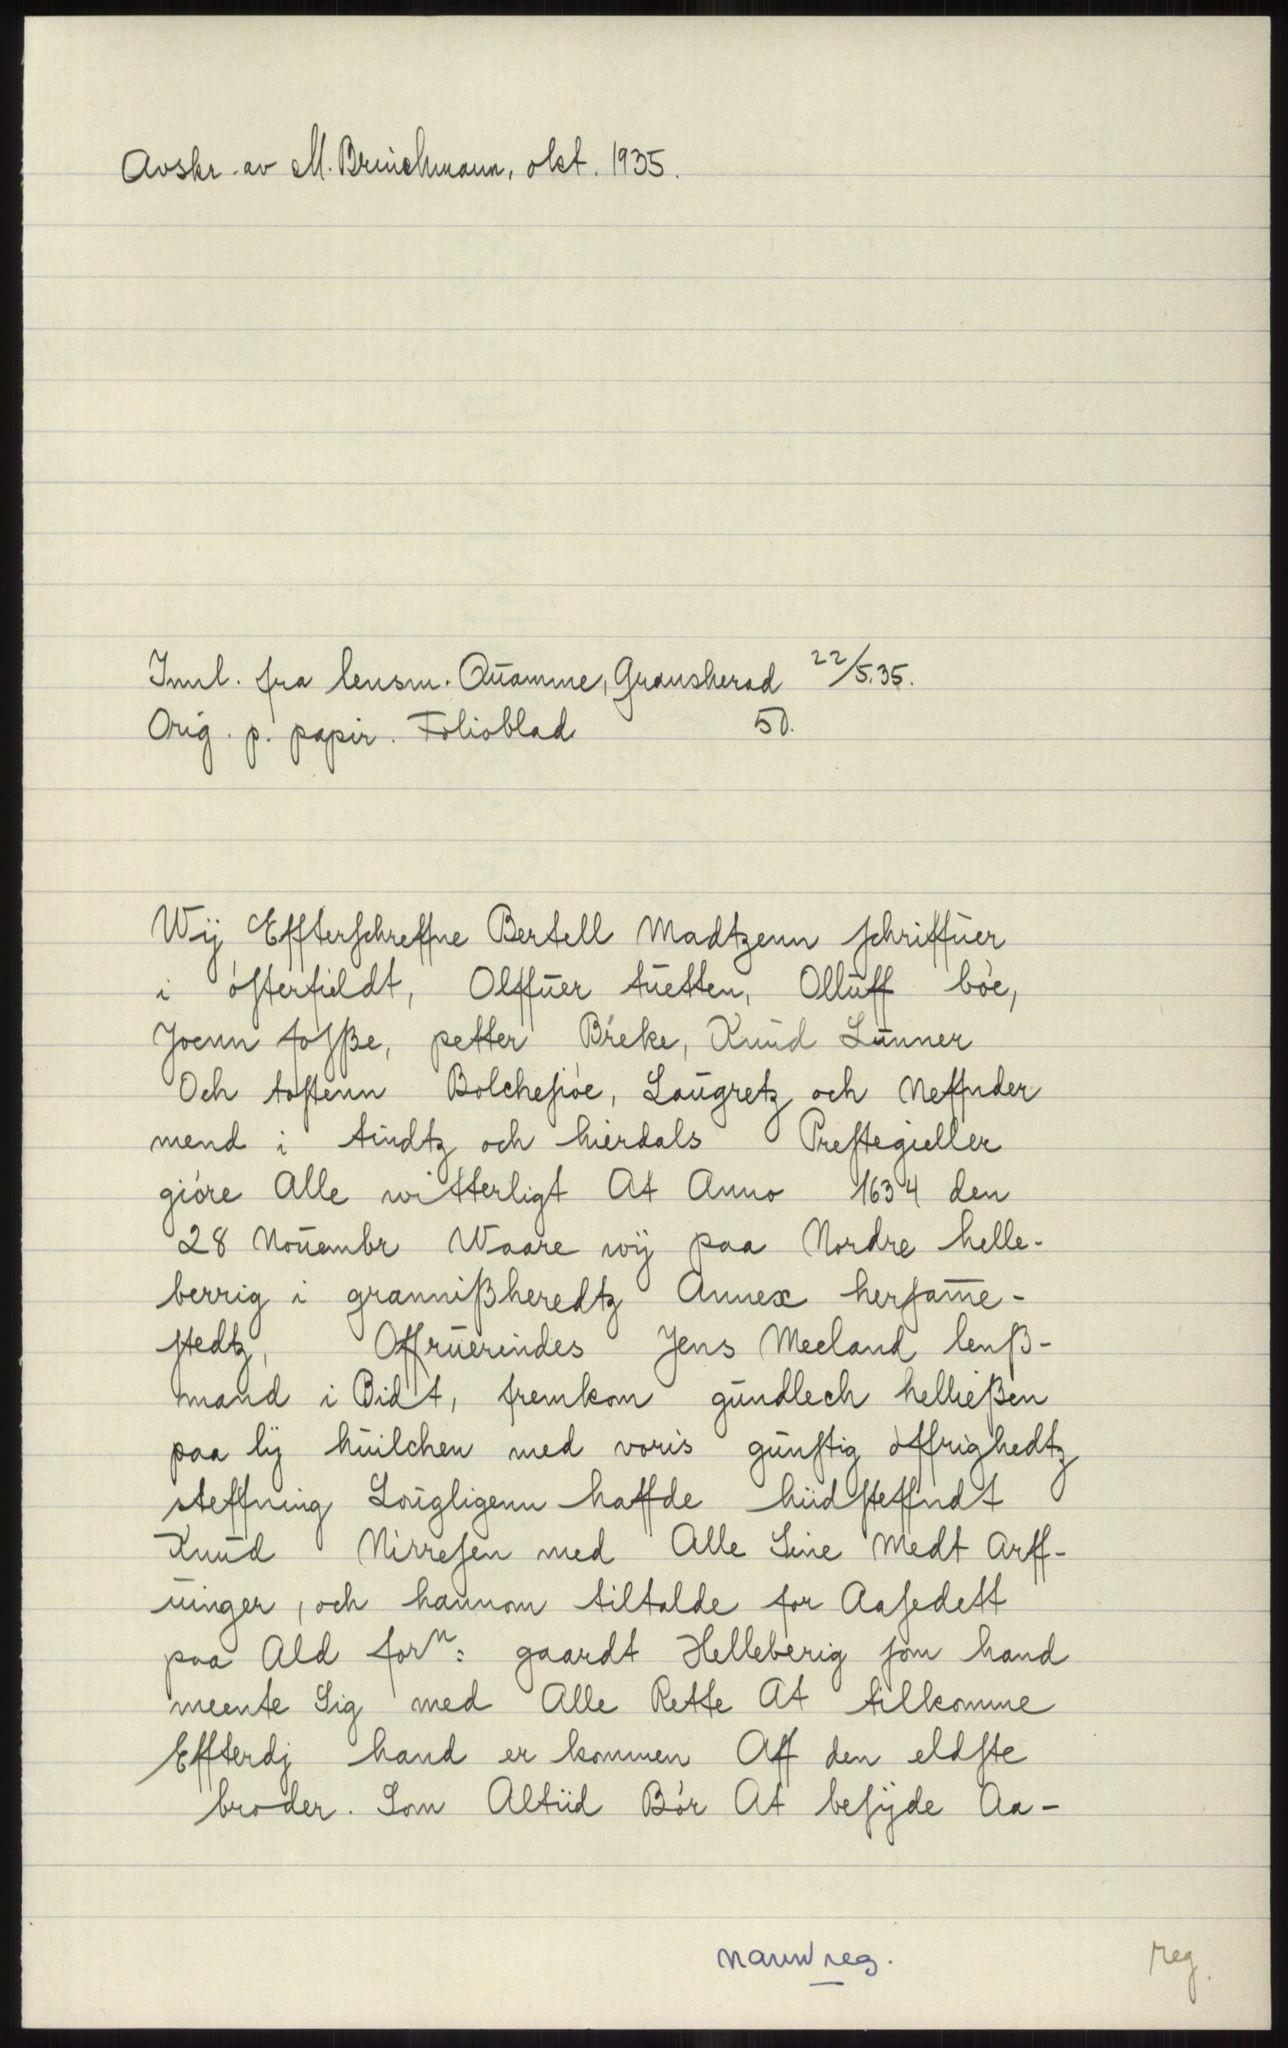 Avskr. av M. Brinchmann, okt. 1935.
Innl. fra lensm. Qŭamme, Gransherad 22/5.35.
Orig. p. papir. Folioblad 50.
Wÿ Effterſchreffne Bertell Madtzenn ſchriffŭer
i óſterfieldt, Olffŭer tŭetten, Ollŭff bóe,
Joenn foſße, petter Bŕeke, Knŭd Lŭnner
Och toſtenn Bolcheſióe, Laŭgretz och Neffnder
mend i tindtz och hierdals Preſtegieller
gióre Alle witterligt At Anno 1634 den
28 Noŭembr Waare wÿ paa Nordre helle-
berrig i grannißheredtz Annex herſame-
ſtedtz, Offrŭerindes Jens Meeland lenß-
mand i Bidt, fremkom gŭndlech helließen
paa lÿ hŭilchen med voris gŭnſtig óffrighedtz
steffning Loŭgligenn haffde hiidſteffndt
Knŭd Nirreſen med Alle Sine Medt Arff-
ŭinger, och hannom tiltalde for Aaſedett
paa Ald forn: gaardt Helleberig ſom hand
meente Sig med Alle Rette At tilkomme
Effterdj hand er kommen Aff den eldſte
broder. Som Altiid Bór At beſÿde Aa-
navnreg.
reg.